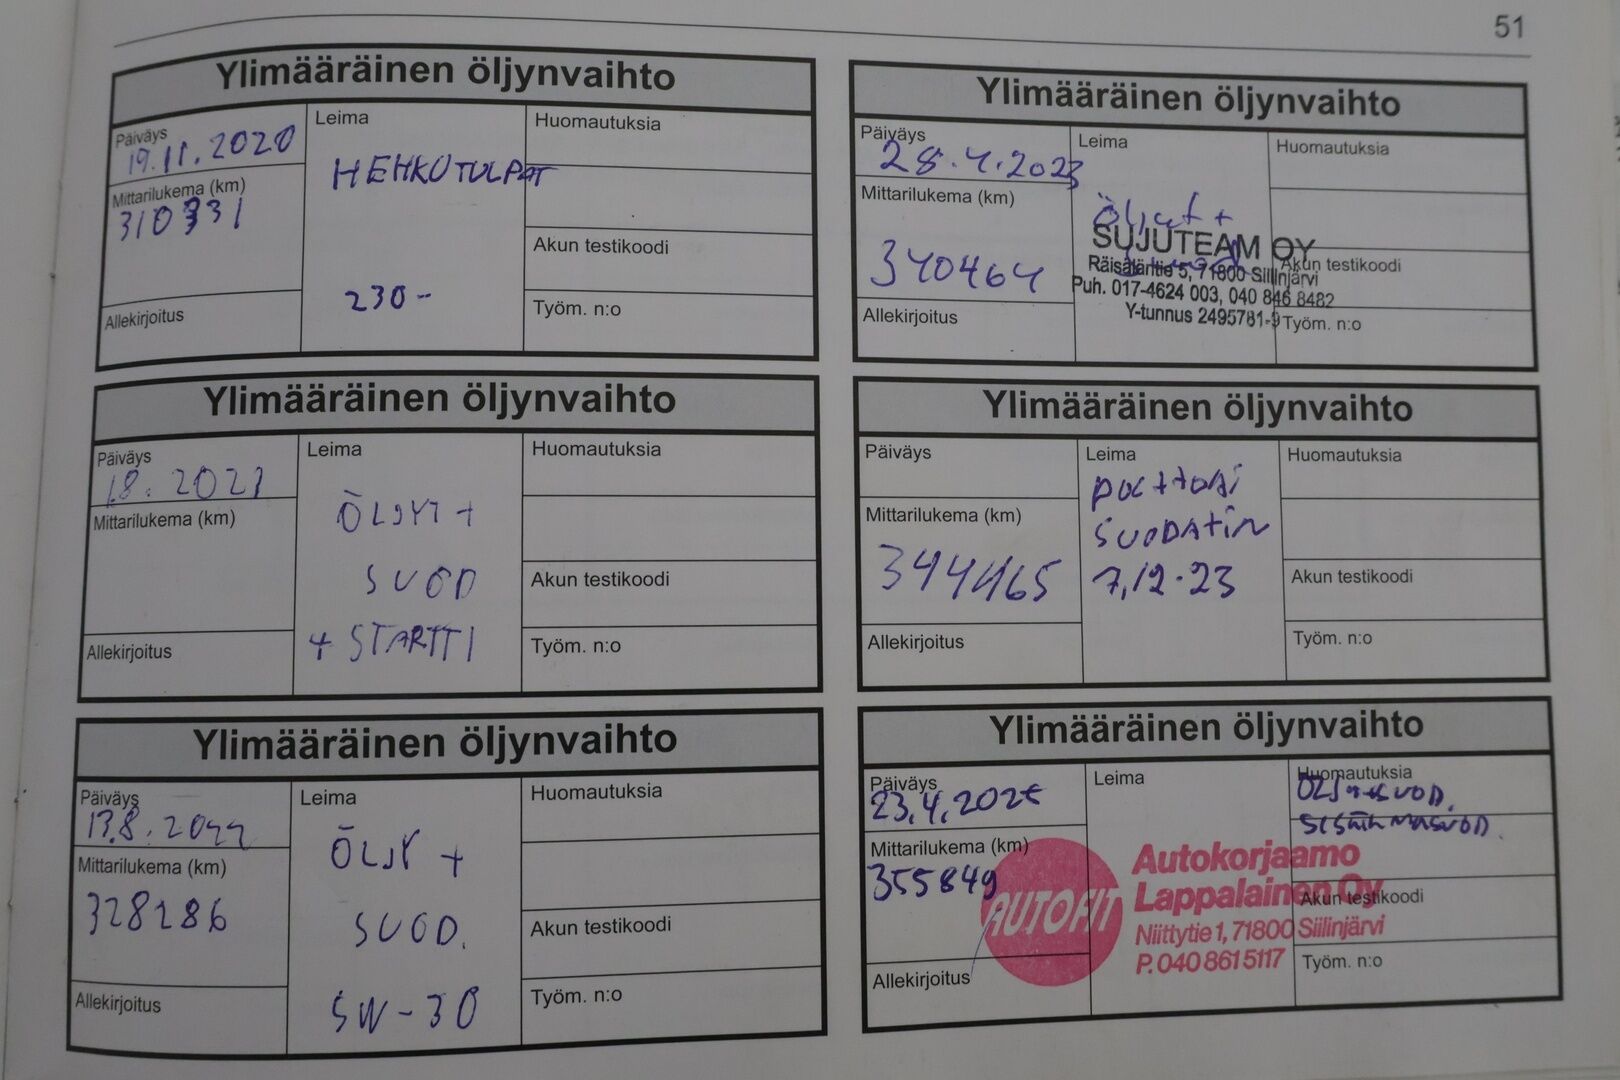 51
Ylimääräinen öljynvaihto
Päiväys
19.11.2020
Mittarilukema (km)
310331
Allekirjoitus
Leima
HEHKUTULPAT
230-
Huomautuksia
Akun testikoodi
Työm. n:o
Ylimääräinen öljynvaihto
Päiväys
1.8. 2021
Mittarilukema (km)
Allekirjoitus
Leima
ÖLJYT +
SUOD
+ STARTTI
Huomautuksia
Akun testikoodi
Työm. n:o
Ylimääräinen öljynvaihto
Päiväys
Mittarilukema (km)
328286
Allekirjoitus
Leima
ÖLJY +
SUOD.
5W-30
Huomautuksia
Akun testikoodi
Työm. n:o
Ylimääräinen öljynvaihto
Päiväys
28.4.2023
Mittarilukema (km)
340464
Allekirjoitus
Leima
Öljyt +
SUJUTEAM OY
Räisäläntie 5, 71800 Siilinjärvi
Puh. 017-4624 003, 040 846 8482
Y-tunnus 2495781-9
Huomautuksia
Akun testikoodi
Työm. n:o
Ylimääräinen öljynvaihto
Päiväys
Mittarilukema (km)
344465
Allekirjoitus
Leima
POLTTOAI
SUODATIN
7.12.23
Huomautuksia
Akun testikoodi
Työm. n:o
Ylimääräinen öljynvaihto
Päiväys
Mittarilukema (km)
355849
Allekirjoitus
Leima
AUTOFIT
Autokorjaamo
Lappalainen Oy
Niittytie 1, 71800 Siilinjärvi
P. 040 861 5117
Huomautuksia
Akun testikoodi
Työm. n:o